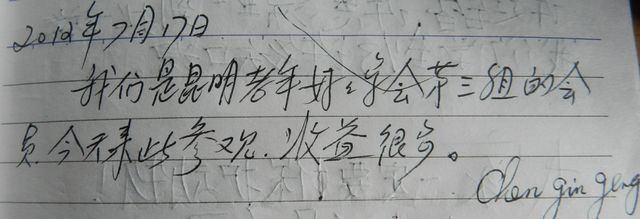 2012年7月17日
我们是昆明老年 会第三组的会
员今天来此参观.收益很多。
Chen gin geng